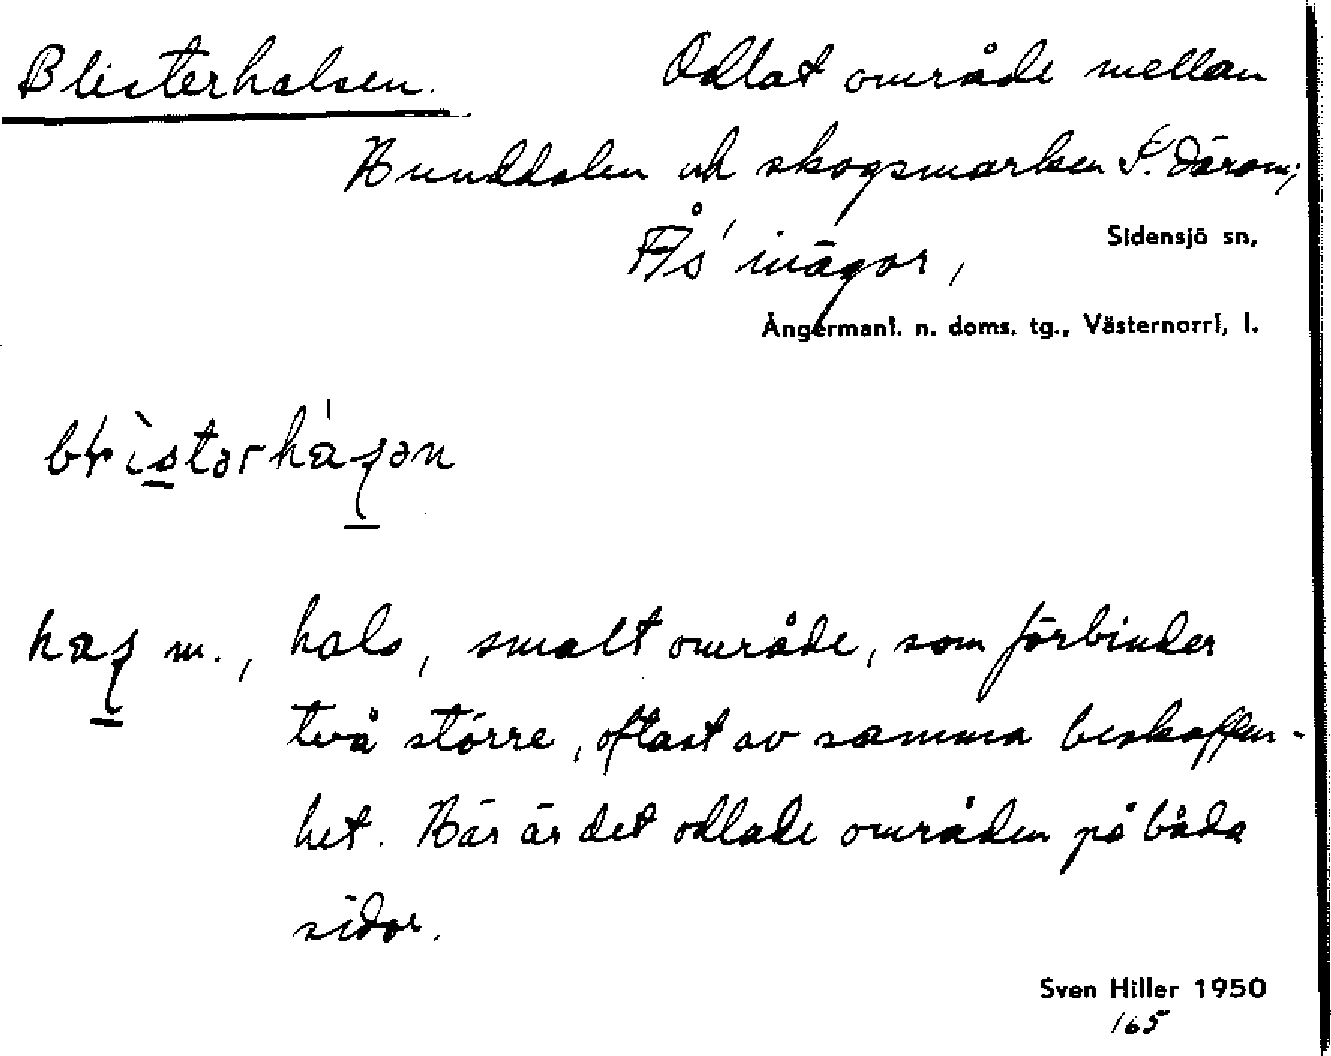 Blisterhalsen. Odlat område mellan
Hunddalen och skogsmarken S. därom;
Ås' inägor,
Sidensjö sn,
Ångermanl. n. doms. tg., Västernorrl, l.
m., hals, smalt område, som förbinder
två större, oftast av samma beskaffen-
het. Här är det odlade områden på båda
sidor.
Sven Hiller 1950
165